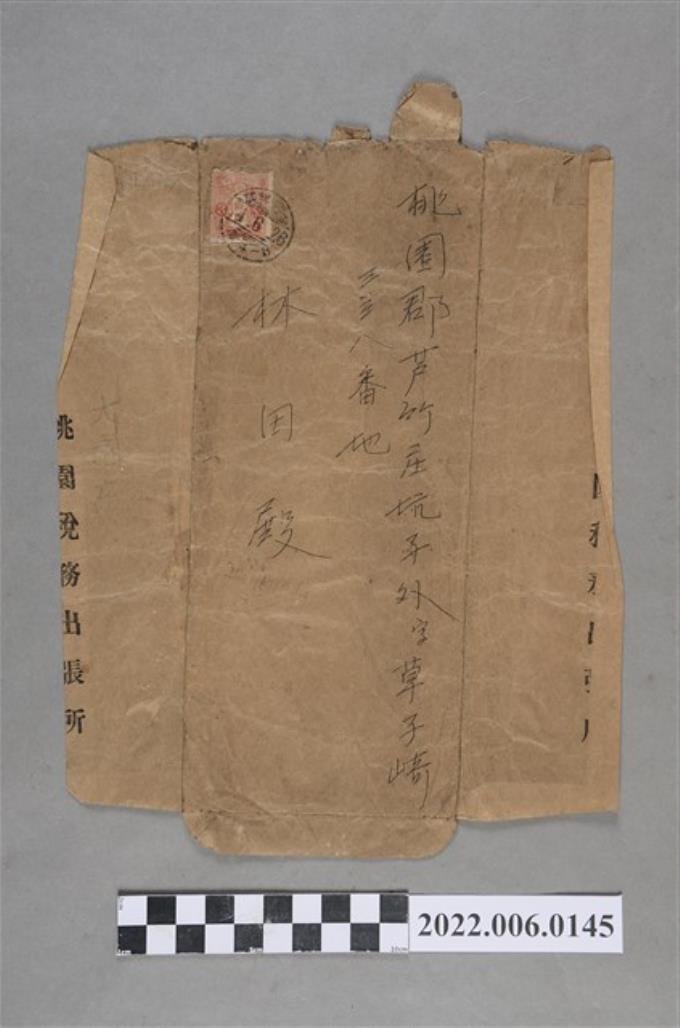 桃園郡芦竹庄坑子外字草子崎
三三八番地
林田殿
桃園稅務出張所
2022.006.0145